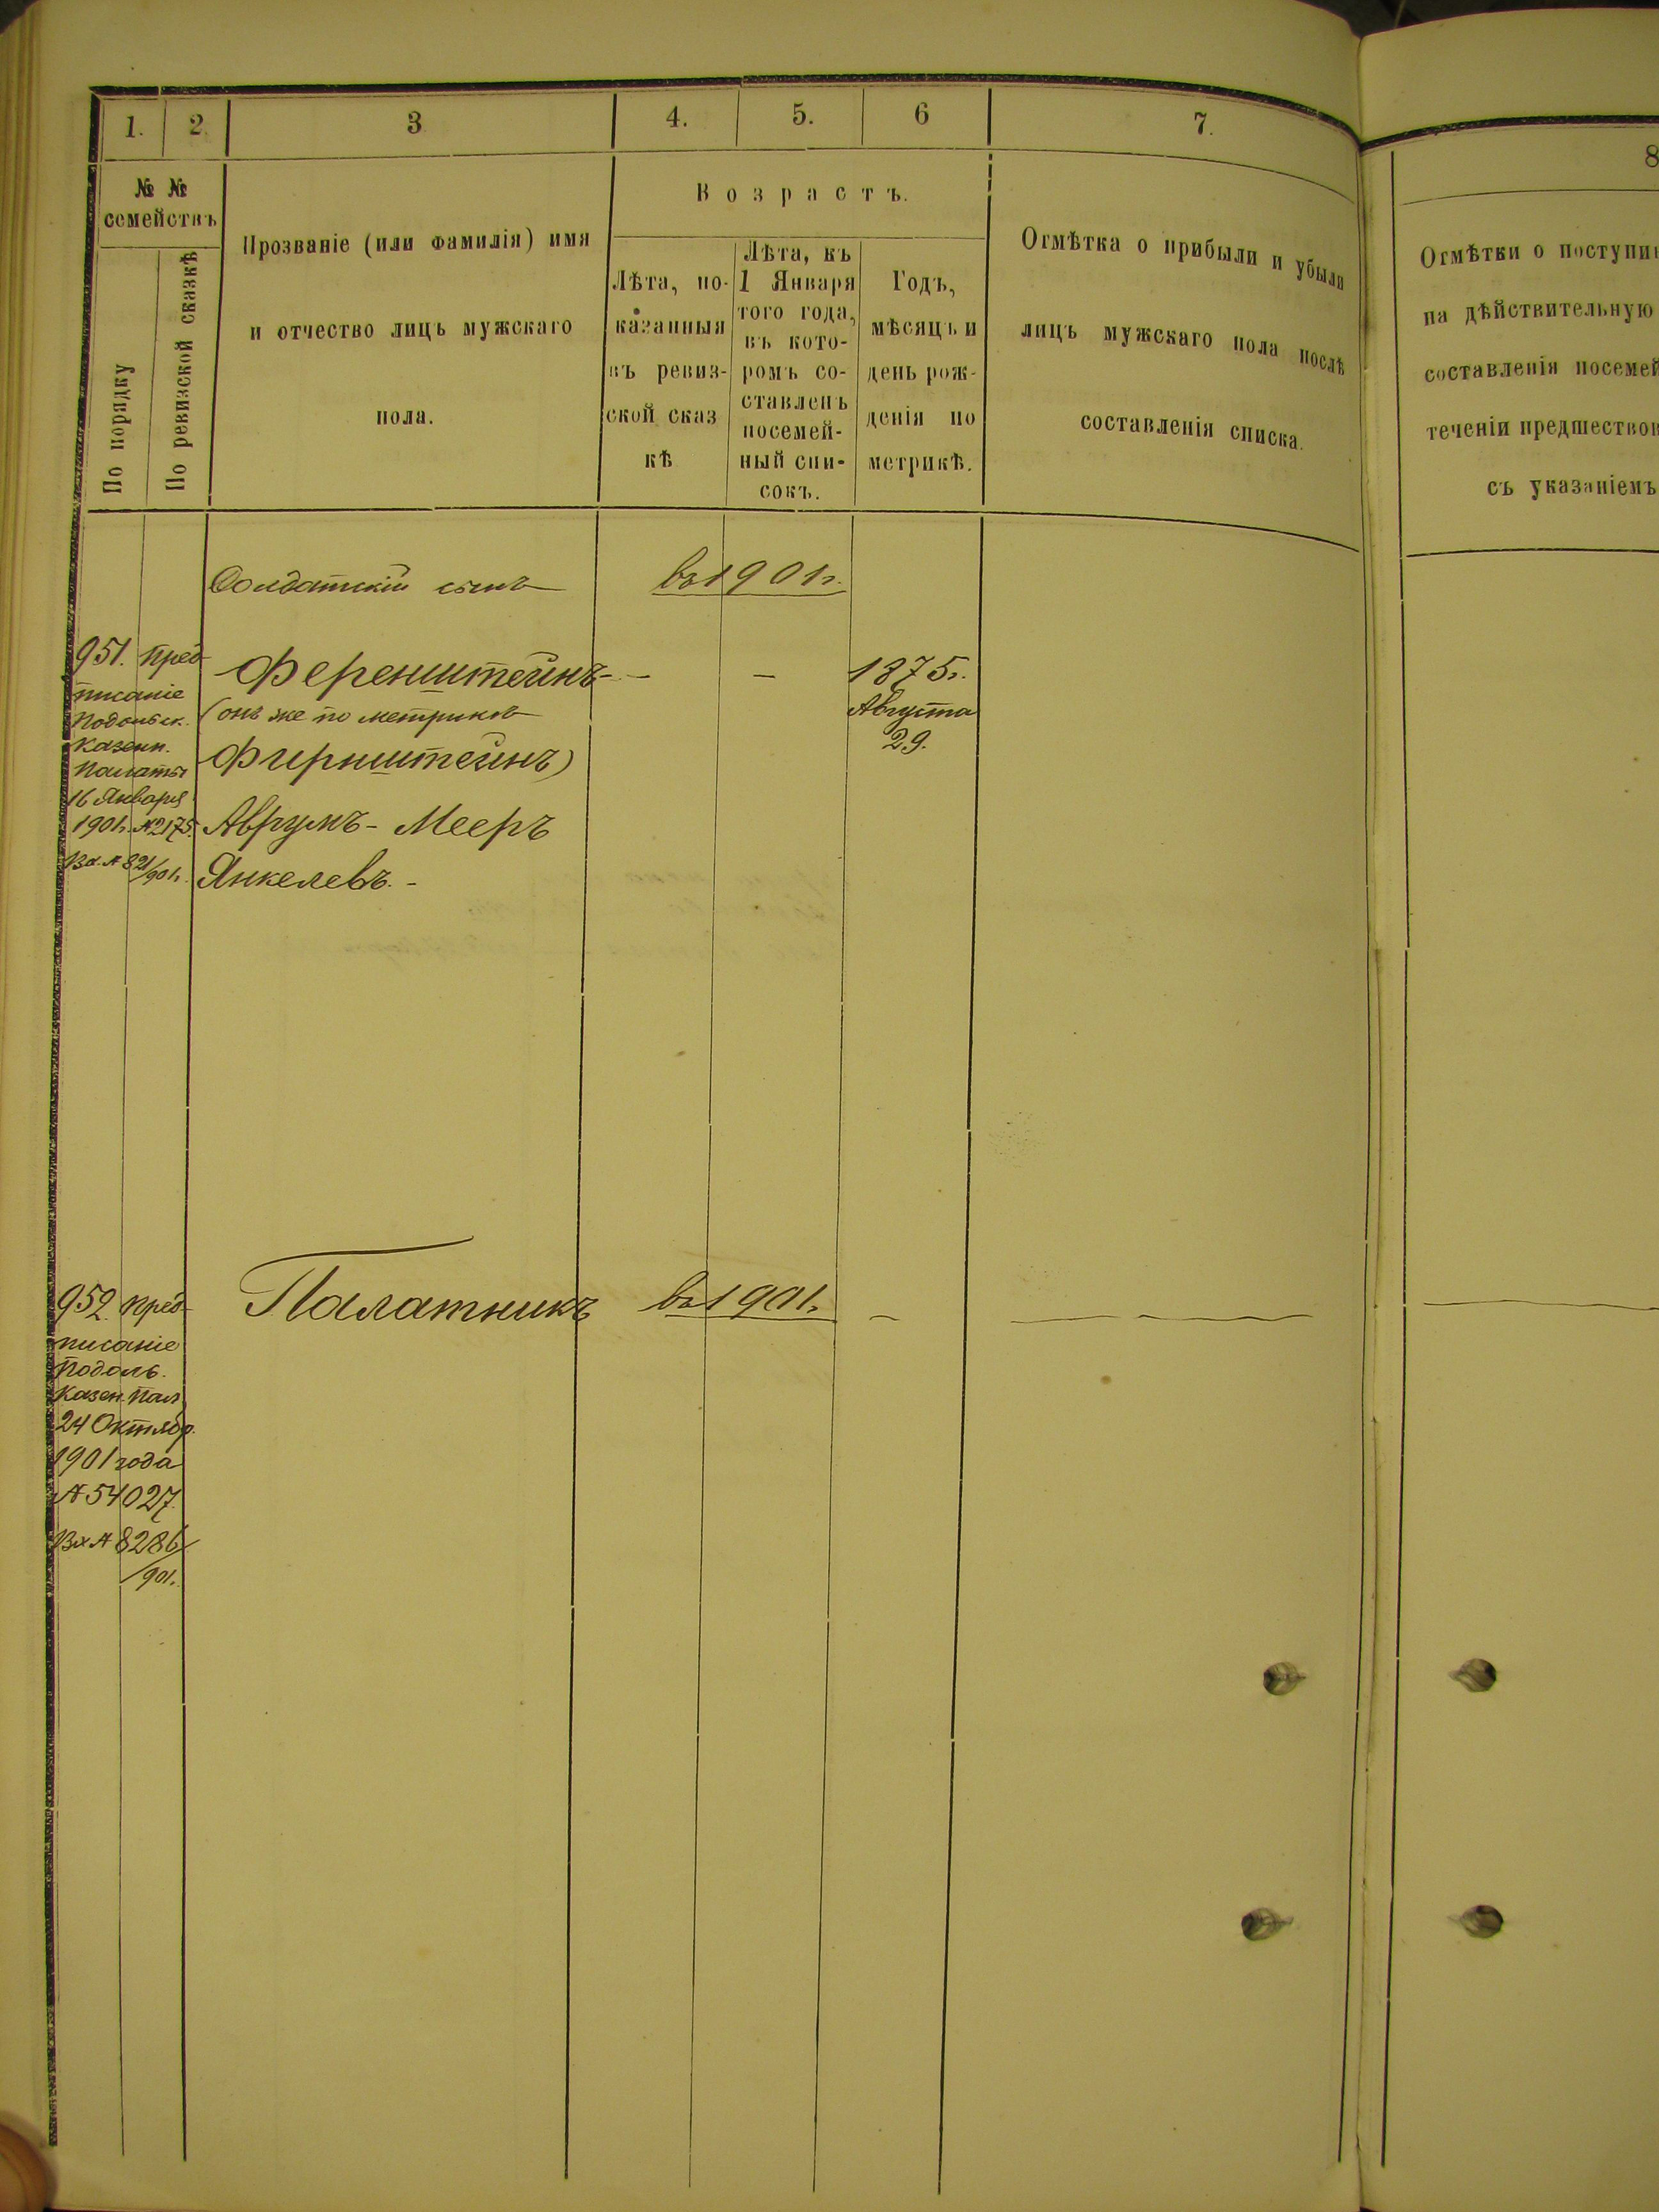 1.
2.
3
4.
5.
6
7.
8
№ №
семействъ
По порядку
По ревизской сказкѣ
Прозваніе (или фамилія) имя
и отчество лицъ мужскаго
пола.
Возрастъ.
Лѣта, по-
казанныя
въ ревиз-
ской сказ
кѣ
Лѣта, къ
1 Января
того года,
въ кото-
ромъ со-
ставленъ
посемей-
ный спи-
сокъ.
Годъ,
мѣсяцъ и
день рож-
денія по
метрикѣ.
Отмѣтка о прибыли и убыли
лицъ мужскаго пола послѣ
составленія списка.
Отмѣтки о
на дѣйствительную
составленія
теченіи
съ указаніемъ
Солдатскій сынъ
въ 1901 г.
951. Пред-
писаніе
Подольск.
Казенн.
Палаты
16 Января
1901 г. № 2175.
Вх. № 821/901 г.
Ференштейнъ - - -
(онъ же по метрикѣ
Фирнштейнъ)
Аврумъ - Мееръ
Янкелевъ. -
1875 г.
Августа
29.
952. Пред-
писаніе
Подоль.
Казен. Пал.
24 Октябр.
1901 года
№ 54027.
Вх № 8286/
/901 г.
Палатникъ
въ 1901 г.